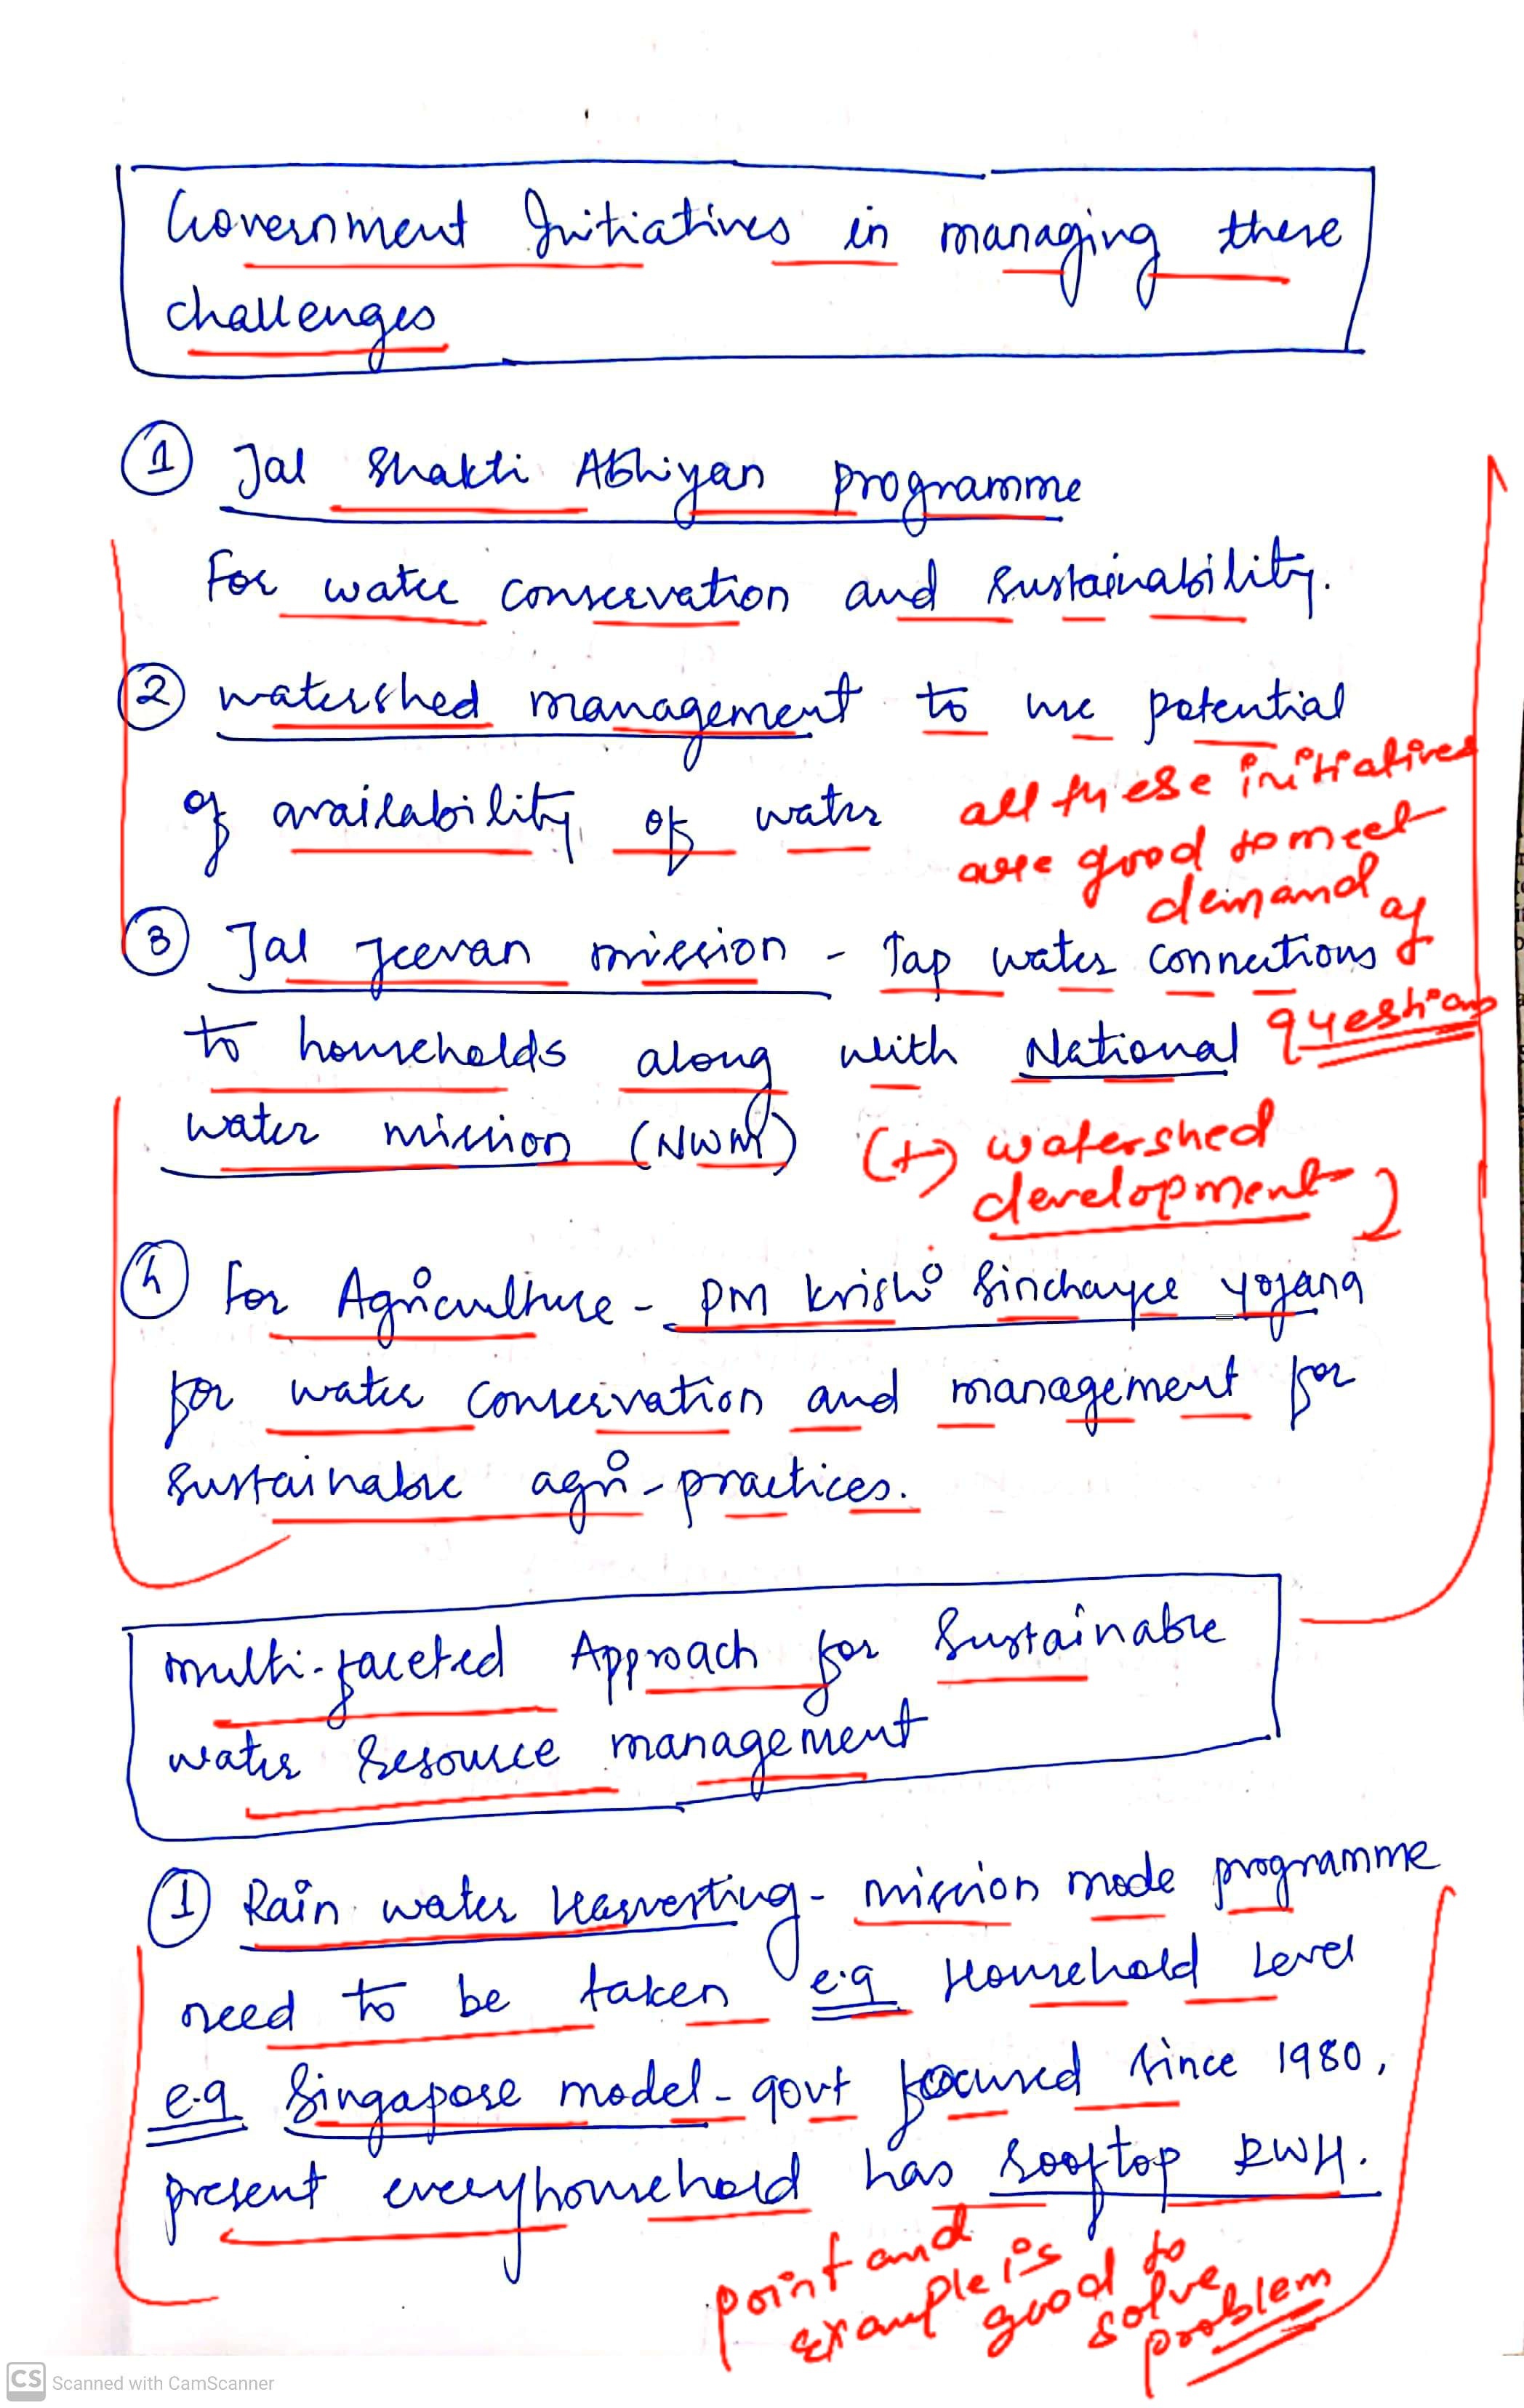 Government Initiatives in managing these
challenges
1 Jal Shakti Abhiyan programme
For water conservation and sustainability.
2 watershed management to use potential
of availability of water
all these initiatives
are good to meet
demand of
questions
3 Jal Jeevan mission - Tap water connections
to households along with National
water mission (NWM)
(+) watershed
development
4 for Agriculture - PM krishi Sinchayee yojana
for water conservation and management for
sustainable agri-practices.
multi-faceted Approach for Sustainable
water resource management
1 Rain water Harvesting - mission mode programme
need to be taken e.g Household Level
e.g Singapore model - govt focused since 1980,
present everyhousehold has rooftop RWH.
point and
example is
good to
solve
problem
CS Scanned with CamScanner